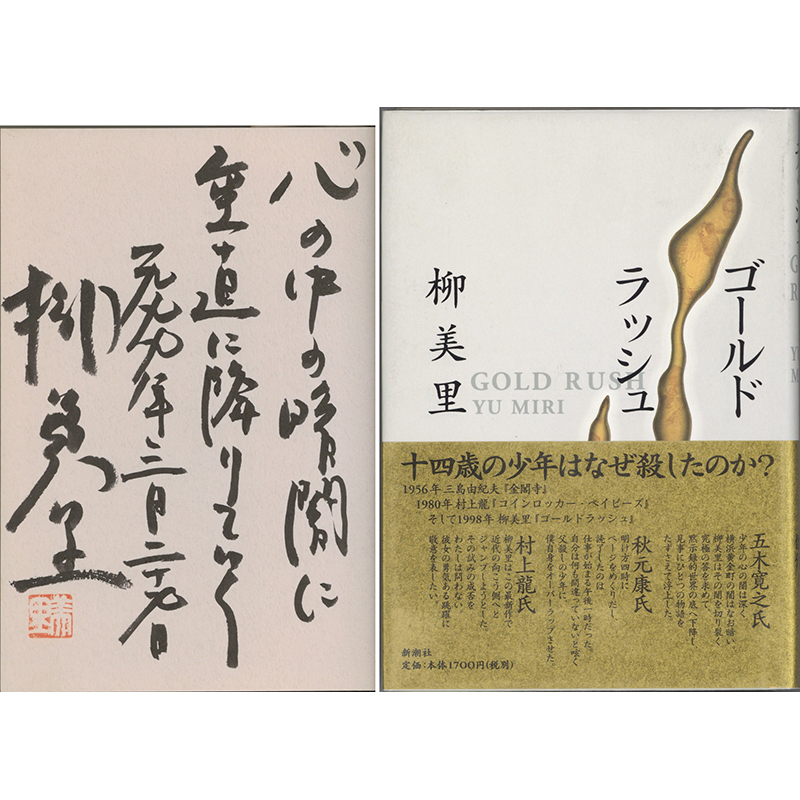 心の中の暗闇に
垂直に降りていく
柳美里
美里
ゴールド
ラッシュ
柳美里
GOLD RUSH
YU MIRI
十四歳の少年はなぜ殺したのか?
1956年 三島由紀夫『金閣寺』
1980年 村上龍『コインロッカー・ベイビーズ』
そして1998年 柳美里『ゴールドラッシュ』
五木寛之氏
少年の心の闇は深く、
横浜黄金町の闇はなお暗い。
柳美里はその闇を切り裂く
究極の答を求めて、
黙示録的世界の底へ下降し
見事にひとつの物語を
たずさえて浮上した。
秋元康氏
明け方四時に
ページをめくりだし、
読了したのは
仕事が始まる午後一時だった。
自分は何も間違っていないと呟く
父殺しの少年に、
僕自身をオーバーラップさせた。
村上龍氏
柳美里はこの最新作で
近代の向こう側へと
ジャンプしようとした
その試みの成否を
わたしは問わない
彼女の勇気ある跳躍に
敬意を表したい
新潮社
定価:本体1700円(税別)